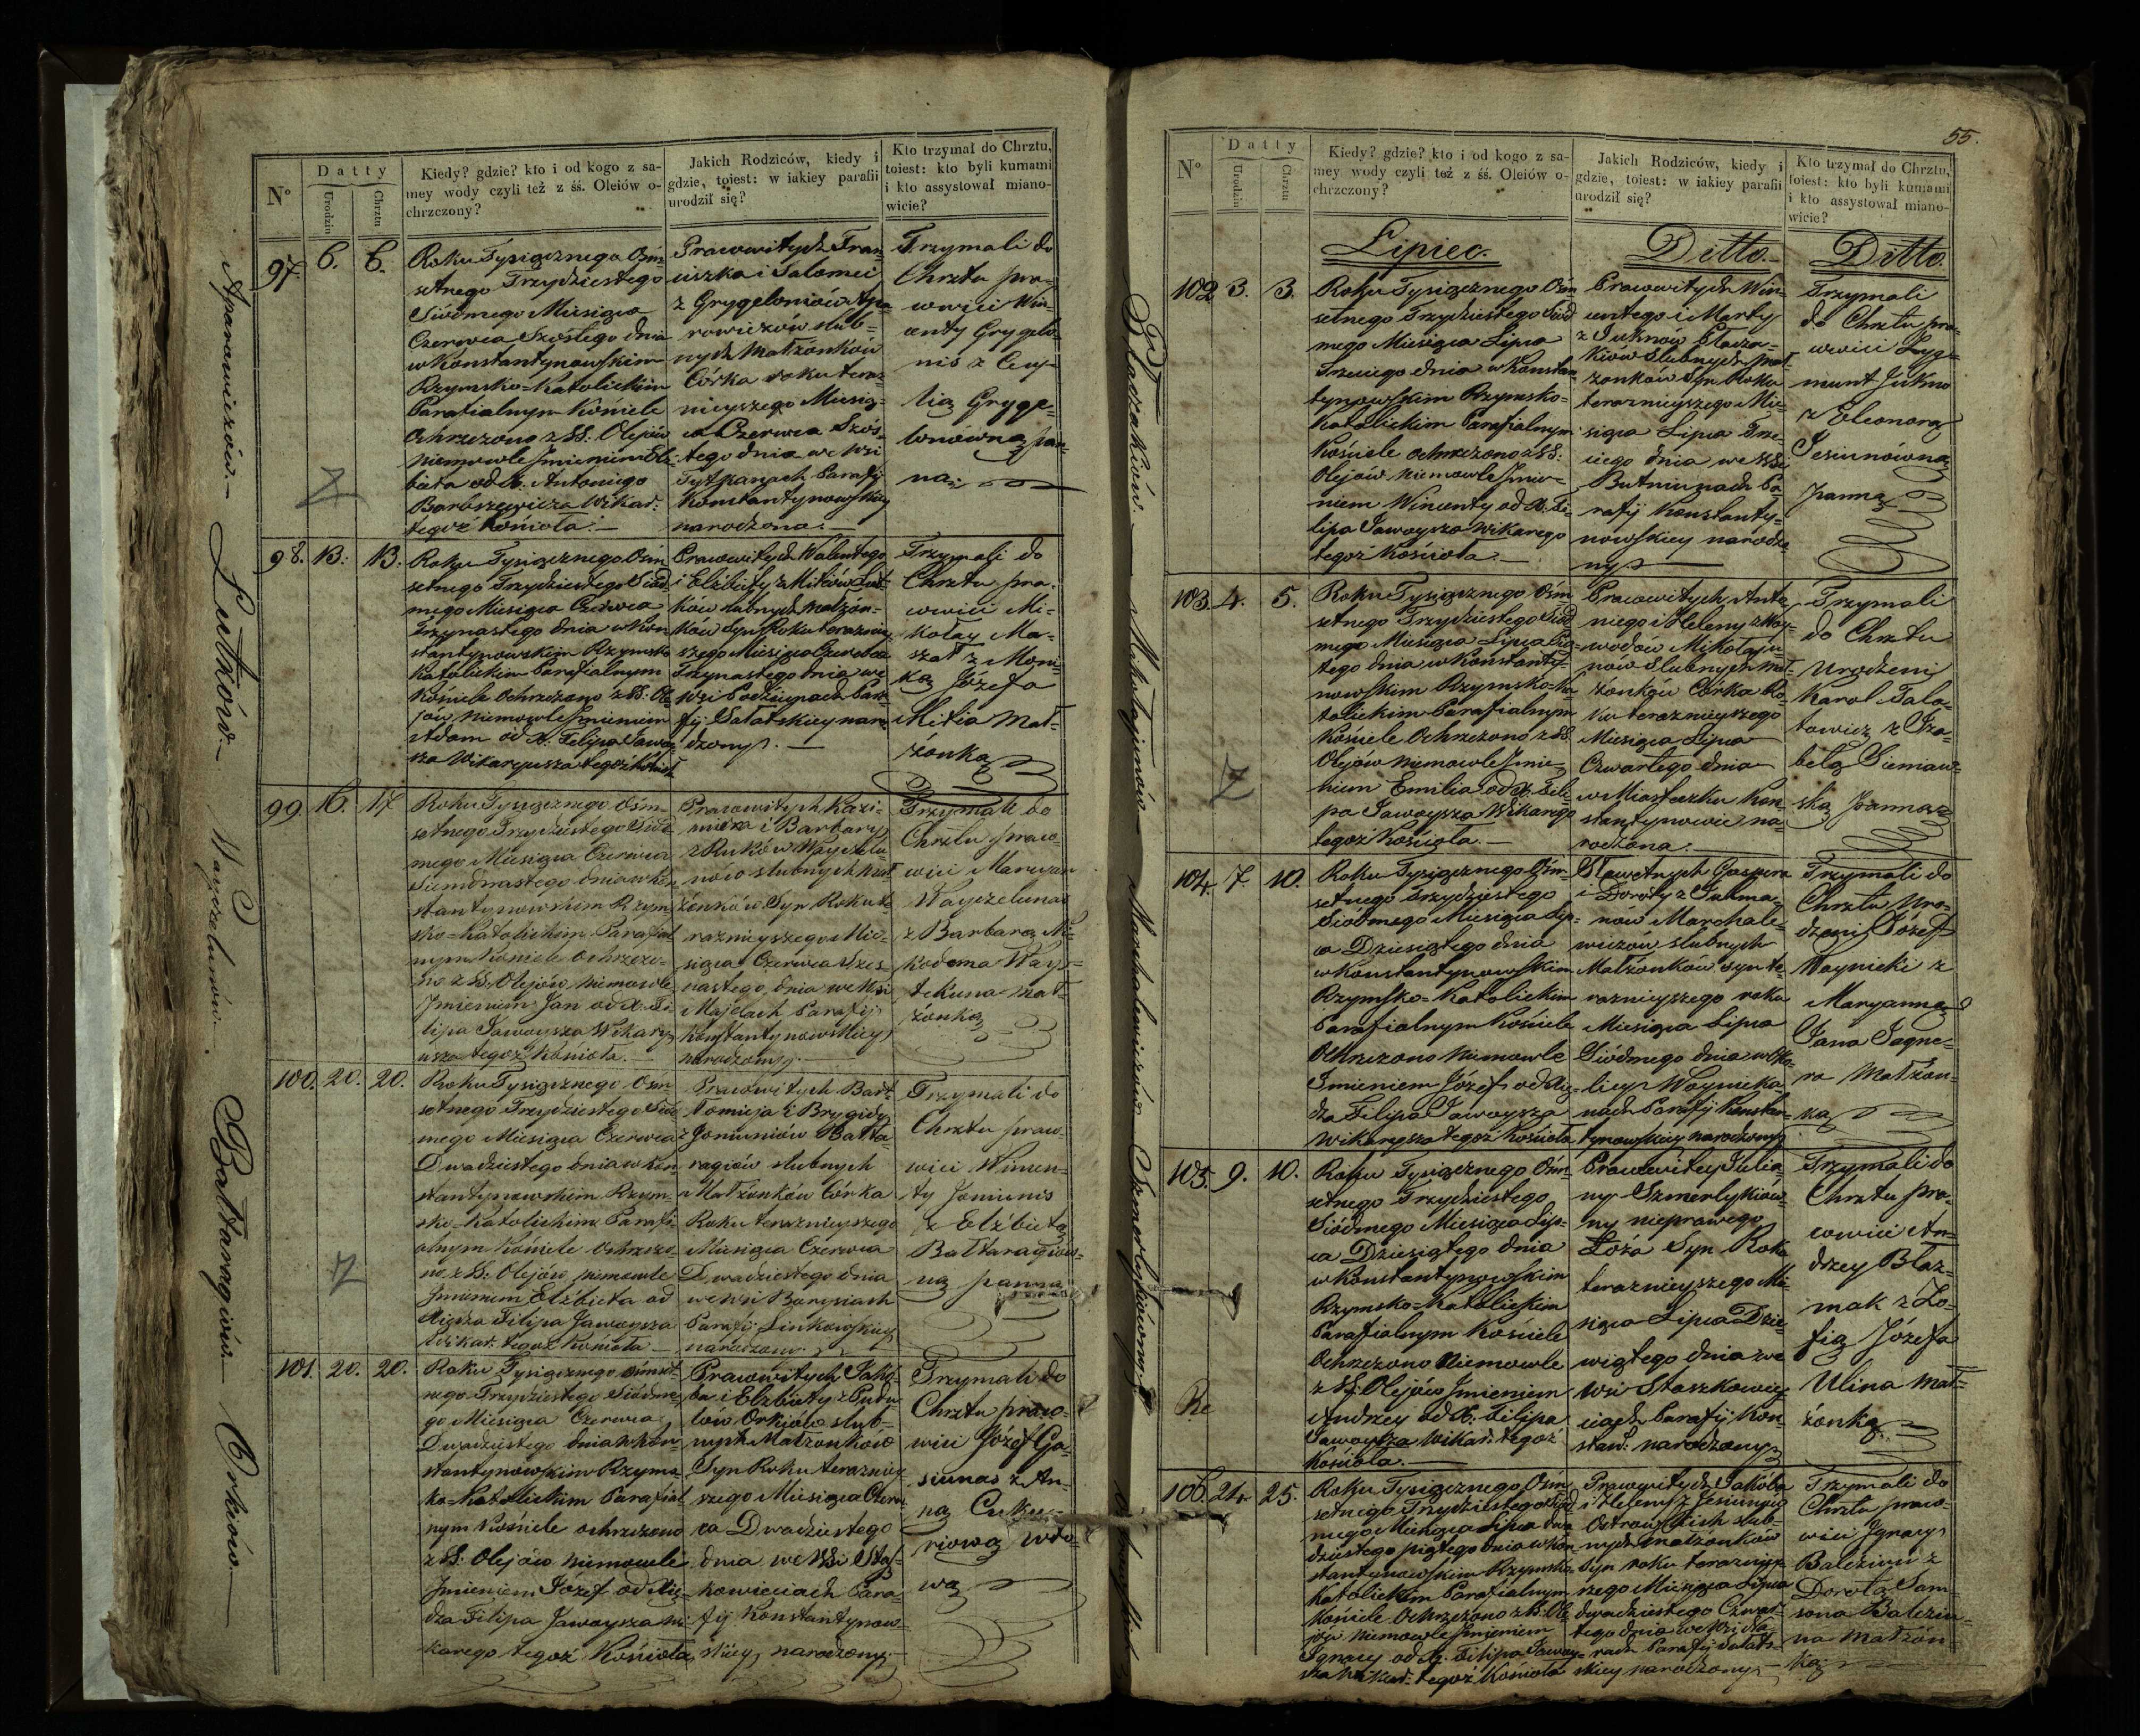 N°
Datty
Urodzin
Chrztu
Kiedy? gdzie? kto i od kogo z sa-
mey wody czyli też z śś. Oleiów o-
chrzczony?
Jakich Rodziców, kiedy i
gdzie, toiest: w iakiey parafii
urodził się?
Kto trzymał do Chrztu,
toiest: kto byli kumami
i kto assystował miano-
wicie?
Aparowiczów.—
97.
6.
6.
Roku Tysiącznego Ośm-
setnego Trzydziestego
Siódmego Miesiąca
Czerwca Szóstego dnia
w Konstantynowskim
Rzymsko=Katolickim
Parafialnym Kościele
Ochrzczono z SS: Olejów
Niemowle Imieniem Elż-
bieta od X. Antoniego
Barbszewicza Wikar:
tegoż Kościoła.—
Pracowitych Fran-
ciszka i Salomei
z Grygeloniów Apa-
rowiczów ślub-
nych Małżonków
Córka roku teraz-
nieyszego Miesią-
ca Czerwca Szós-
tego dnia we Wsi
Tytkanach Parafij
Konstantynowskiey
narodzona.—
Trzymali do
Chrztu pra-
cowici Win-
centy Grygelo-
nis z Cecy-
lią Gryge-
loniówną pan-
ną.
Lutków.—
98.
13.
13.
Roku Tysiącznego Ośm
setnego Trzydziestego Siód-
mego Miesiąca Czerwca
Trzynastego dnia w Kon
stantynowskim Rzymsko
Katolickim Parafialnym
Kościele Ochrzczono z SS: Ole-
jów Niemowle Imieniem
Adam od X. Felipa Jawoy-
sza Wikaryusza tegoż Kościoła
Pracowitych Walentego
i Elżbiety z Mitiów Lut-
ków ślubnych Małżon-
ków Syn Roku teraźniey-
szego Miesiąca Czerwca
Trzynastego dnia we
Wsi Podziuynach Para-
fij Sałatskiey naro-
dzony.—
Trzymali do
Chrztu pra-
cowici Mi-
kołay Ma-
szał z Moni-
ką Józefa
Mitia Mał-
żonką
Wayczelunów.
99.
16.
17
Roku Tysiącznego Ośm-
setnego Trzydziestego Siód
mego Miesiąca Czerwca
Siedmnastego dnia w Kon
stantynowskim Rzym-
sko=Katolickim Parafial
nym Kościele Ochrzczo-
no z SS. Olejów Niemowle
Imieniem Jan od X. Fi
lipa Jawoysza Wikary-
usza tegoż Kościoła.—
Pracowitych Kazi-
mierza i Barbary
z Ruków Wayczelu-
nów ślubnych Mał
żonków Syn Roku te
raznieyszego Mie-
siąca Czerwca Szes
nastego dnia we Wsi
Majdach Parafij
Konstantynowskiey
narodzony.
Trzymali do
Chrztu praco-
wici Maruzan
Wayczelunas
z Barbarą Ni-
kodema Ways-
tekuna Mał-
żonką
Bałtaragiów.—
100.
20.
20.
Roku Tysiącznego Ośm
setnego Trzydziestego Siód
mego Miesiąca Czerwca
Dwudziestego dnia w Kon-
stantynowskim Rzym-
sko=Katolickim Parafi-
alnym Kościele Ochrzczo-
no z SS: Olejów Niemowle
Imieniem Elżbieta od
Xiędza Filipa Jawoysza
Wikar: tegoż Kościoła
Pracowitych Bart-
łomieja i Brygidy
z Joniuniów Bałta
ragiów ślubnych
Małżonków Córka
Roku teraznieyszego
Miesiąca Czerwca
Dwudziestego dnia
we Wsi Barysiach
Parafij Linkowskiey
narodzona.
Trzymali do
Chrztu praco-
wici Wincen-
ty Joniunis
z Elżbietą
Bałtaragiów-
ną panną
Orkiów.—
101.
20.
20.
Roku Tysiącznego Ośmset-
nego Trzydziestego Siódme-
go Miesiąca Czerwca
Dwudziestego dnia w Kon-
stantynowskim Rzyms-
ko=Katolickim Parafial
nym Kościele ochrzczono
z SS. Olejów Niemowle
Imieniem Józef od Xię-
dza Filipa Jawoysza Wi-
karego tegoż Kościoła
Pracowitych Jakó-
ba i Elżbiety z Pudu-
łów Orkiów ślub-
nych Małżonków
Syn Roku terazniey-
szego Miesiąca Czerw-
ca Dwudziestego
dnia we Wsi Staś-
kowieciach Para-
fij Konstantynow-
skiey narodzony.—
Trzymali do
Chrztu praco-
wici Józef Ga-
siunas z An-
ną Cuku-
riową wdo-
wą.
55.
N°
Datty
Urodzin
Chrztu
Kiedy? gdzie? kto i od kogo z sa-
mey wody czyli też z śś. Oleiów o-
chrzczony?
Jakich Rodziców, kiedy i
gdzie, toiest: w iakiey parafii
urodził się?
Kto trzymał do Chrztu,
toiest: kto byli kumami
i kto assystował miano-
wicie?
Lipiec.
Ditto.
Ditto.
102
3.
3.
Roku Tysiącznego Ośm-
setnego Trzydziestego Siód
mego Miesiąca Lipca
Trzeciego dnia w Konstan
tynowskim Rzymsko-
Katolickim Parafialnym
Kościele Ochrzczono z SS:
Olejów Niemowle Imie-
niem Wincenty od X. Fi-
lipa Jawoysza Wikarego
tegoż Kościoła.—
Pracowitych Win-
centego i Marty
z Juknów Płacza-
kiów Ślubnych Mał-
żonków Syn Roku
teraznieyszego Mie-
siąca Lipca Trze-
ciego dnia we Wsi
Butniunach Pa-
rafij Konstanty-
nowskiey narodzo
ny.
Trzymali
do Chrztu pra-
cowici Zyg-
munt Jukno
z Eleonorą
Jesiunówną
panną
Mikołajunów
103.
4.
5.
Roku Tysiącznego Ośm
setnego Trzydziestego Siód
mego Miesiąca Lipca Pią-
tego dnia w Konstanty-
nowskim Rzymsko=Ka-
tolickim Parafialnym
Kościele Ochrzczono z SS.
Olejów Niemowle Imie-
niem Emilia od X. Fili-
pa Jawoysza Wikarego
tegoż Kościoła.—
Pracowitych Anto
niego i Heleny z Woy-
wodów Mikołaju-
nów Ślubnych Mał-
żonków Córka Ro-
ku teraznieyszego
Miesiąca Lipca
Czwartego dnia
w Miasteczku Kon-
stantynowie na-
rodzona.
Trzymali
do Chrztu
Urodzeni
Karol Fala-
towicz z Iza-
belą Sieniaw-
ską Joanną
Marchalewiczów
104.
7.
10.
Roku Tysiącznego Ośm-
setnego Trzydziestego
Siódmego Miesiąca Lip-
ca Dziesiątego dnia
w Konstantynowskim
Rzymsko=Katolickim
Parafialnym Kościele
Ochrzczono Niemowle
Imieniem Józef od Xię-
dza Filipa Jawoysza
Wikarysza tegoż Kościoła
Sławetnych Gaspera
i Doroty z Juchma-
now Marchale-
wiczów ślubnych
Małżonków syn te-
raznieyszego roku
Miesiąca Lipca
Siódmego dnia w Oko-
licy Woynicka
nach Parafij Konstan-
tynowskiey narodzony
Trzymali do
Chrztu Uro-
dzeni Józef
Woynicki z
Maryanną
Jana Jagne-
ra Małżon-
ką
Szmerlykiówny.
105.
9.
10.
Roku Tysiącznego Ośm-
setnego Trzydziestego
Siódmego Miesiąca Lip-
ca Dziesiątego dnia
w Konstantynowskim
Rzymsko=Katolickim
Parafialnym Kościele
Ochrzczono Niemowle
z SS. Olejów Imieniem
Andrzey od X. Filipa
Jawoysza Wikar: tegoż
Kościoła.—
Pracowitey Julia-
ny Szmerlykiów-
ny nieprawego
Łoża Syn Roku
teraznieyszego Mie
siąca Lipca Dzie-
wiątego dnia we
Wsi Staszkowie-
ciach Parafij Kon
stan: narodzony
Trzymali do
Chrztu pra-
cowici An-
drzey Blaz-
mak z Zo-
fią Józefa
Ulina Mał-
żonką
106.
24.
25.
Roku Tysiącznego Ośm
setnego Trzydziestego Siód
mego Miesiąca Lipca dwu-
dziestego piątego dnia w Kon-
stantynowskim Rzymsko-
Katolickim Parafialnym
Kościele Ochrzczono z SS: Ole-
jów Niemowle Imieniem
Ignacy od X. Filipa Jawoy-
sza Wikar: tegoż Kościoła
Pracowitych Jakóba
i Heleny z Jesiunow
Ostrowskich ślub-
nych Małżonków
Syn roku terazniey-
szego Miesiąca Lipca
dwudziestego Czwar-
tego dnia we Wsi
rach Parafij Sałats-
kiey narodzony
Trzymali do
Chrztu praco-
wici Ignacy
Balcziun z
Dorotą Sam-
sona Balcziu-
na Małżon-
ką